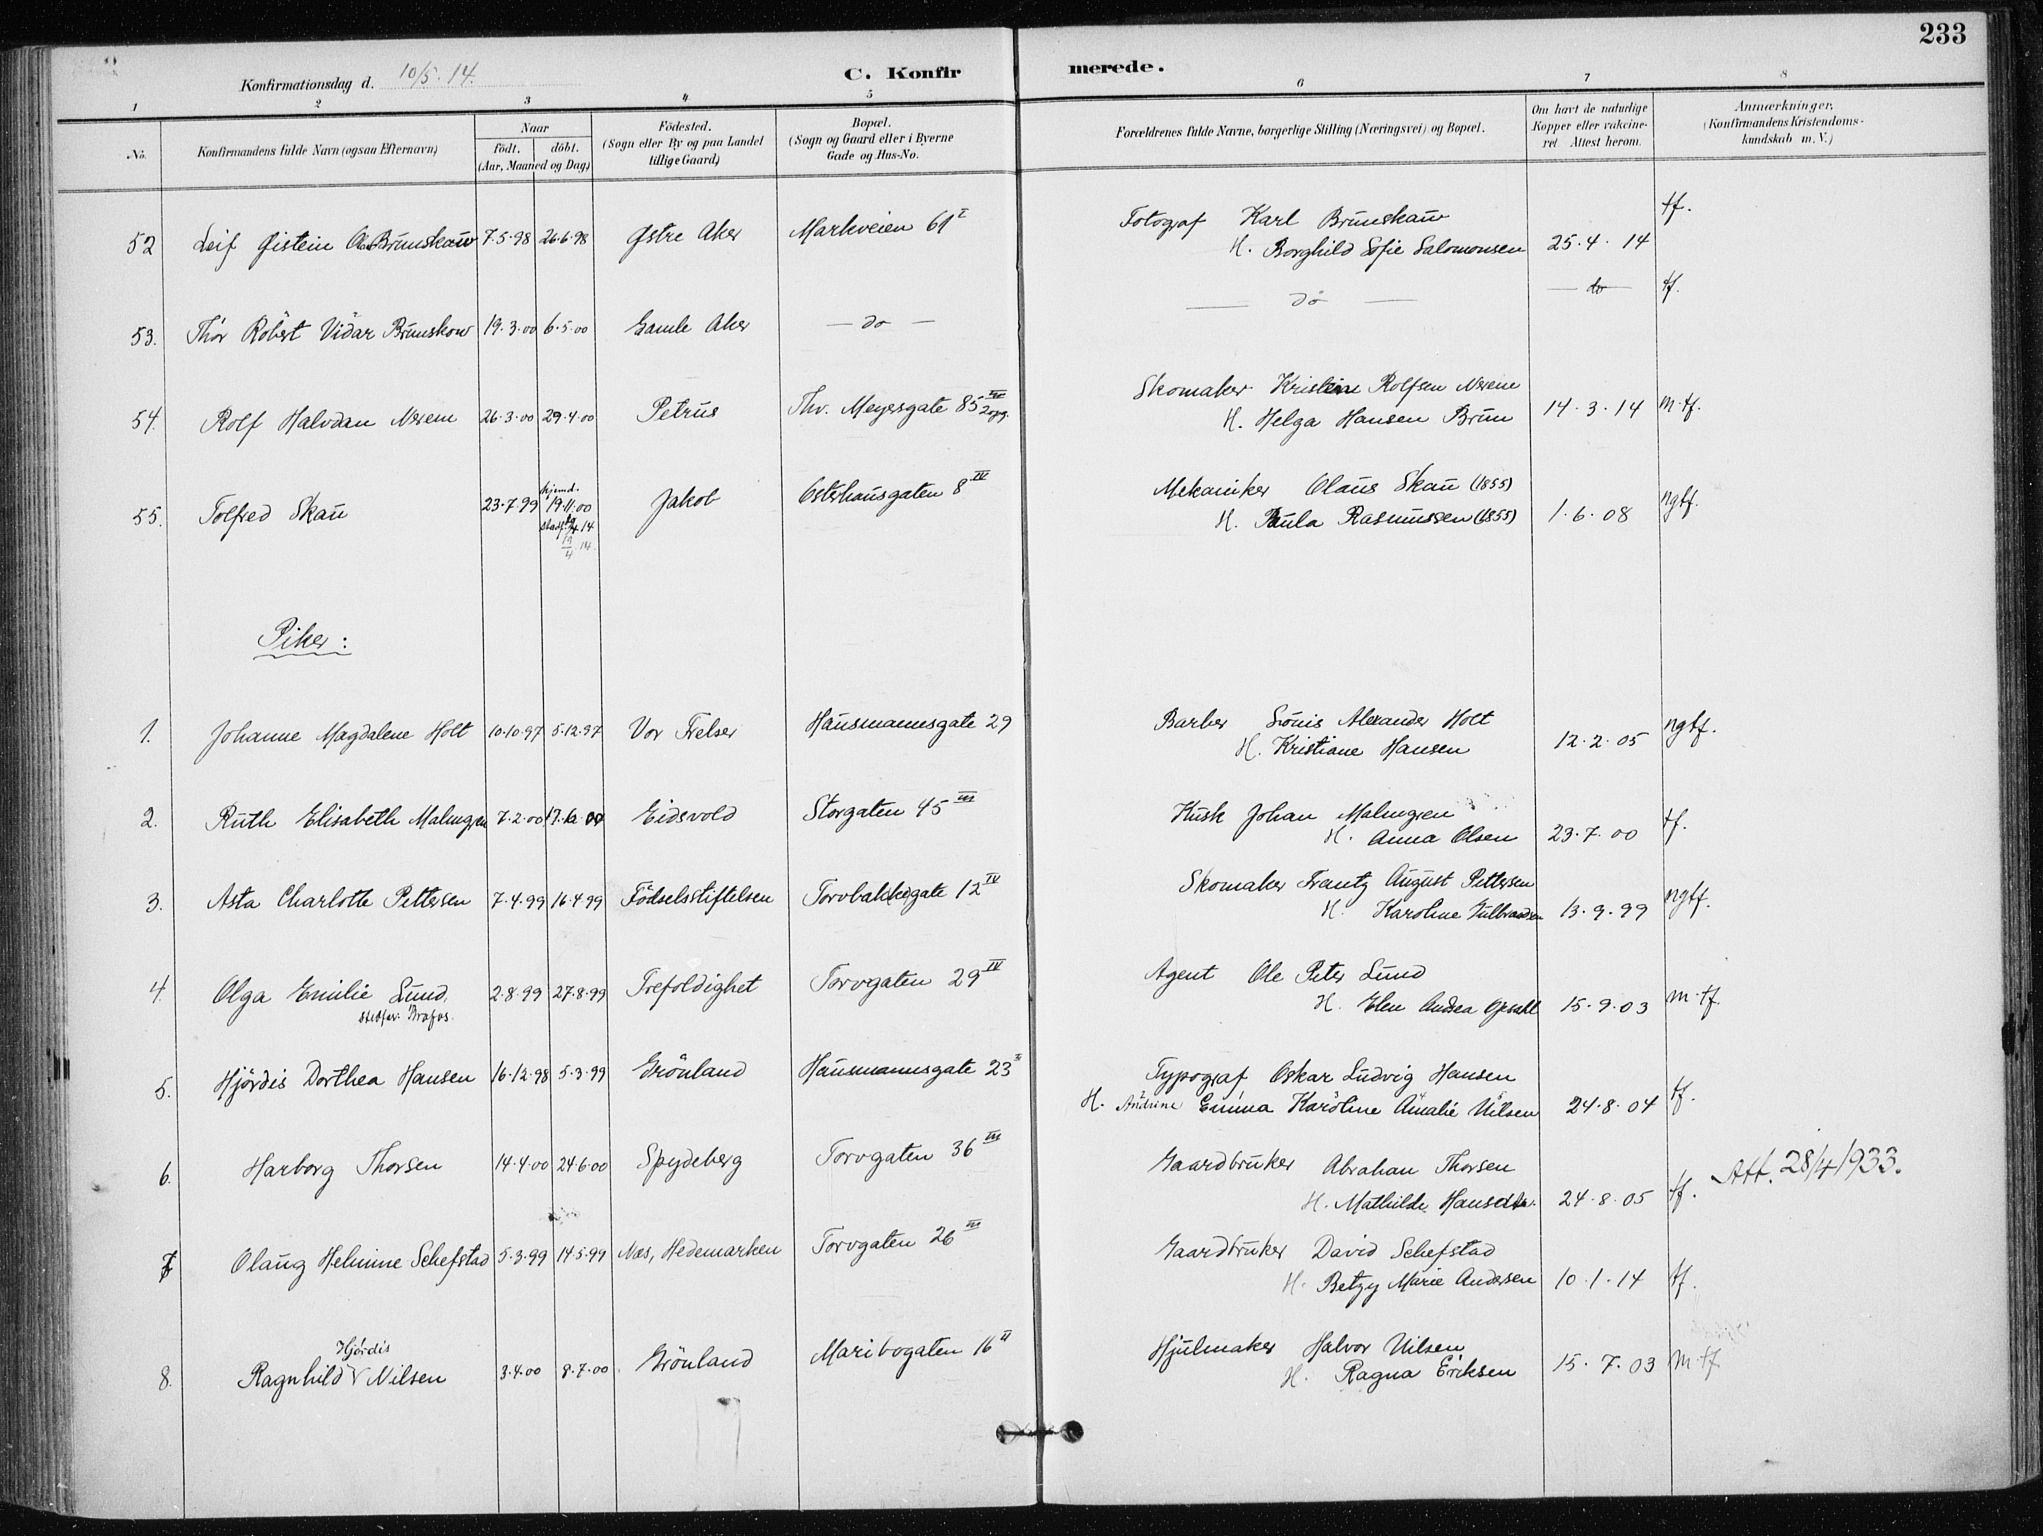 233
Konfirmationsdag d. 10/5. 14.
C. Konfirmerede.
1 2 3 4 5 6 7 8
No.
Konfirmandens fulde Navn (ogsaa Efternavn)
Naar
födt.
döbt.
(Aar, Maaned og Dag)
Födested.
(Sogn eller By og paa Landet
tillige Gaard)
Bopæl.
(Sogn og Gaard eller i Byerne
Gade og Hus-No.
Forældrenes fulde Navne, borgerlige Stilling (Næringsvei) og Bopæl.
Om havt de naturlige
Kopper eller vakcine-
ret Attest herom.
Anmærkninger.
(Konfirmandens Kristendoms-
kundskab m. V.)
52 Leif Øistein Brunskauw 7.5.98 26.6.98 Østre Aker Markveien 61 I Fotograf Karl Brunskauw tf.
H. Borghild Sofie Salomonsen 25.4.14
53. Thor Robert Vidar Brunskow 19.3.00 6.5.00 Gamle Aker — do — — do — — do — tf.
54. Rolf Halvdan Nerem 26.3.00 29.4.00 Petrus Thv. Meyersgate 85 III 2 opg. Skomaker Kristine Rolfsen Nerene
H. Helga Hansen Brun 14.3.14 m.tf.
55. Tolfred Skau 23.7.99 hjemd. 19.11.00 stadf. 19/4.14. Jakob Osterhausgaten 8 IV Mekaniker Olaus Skau (1855)
H. Paula Rasmussen (1855) 1.6.08 ngtf.
Piker:
1. Johanne Magdalene Holt 10.10.97 5.12.97 Vor Frelser Hausmannsgate 29 Barber Louis Alexander Holt
H. Kristiane Hansen 12.2.05 ngtf.
2. Ruth Elisabeth Malmgren 7.2.00 Eidsvold Storgaten 45 III Kusk Johan Malmgren
H. Anna Olsen 23.7.00 tf.
3. Asta Charlotte Pettersen 7.4.99 16.4.99 Födselsstiftelsen Torvbakkegate 12 IV Skomaker Frantz August Pettersen
H. Karoline Gulbrandsen 13.9.99 ngtf.
4. Olga Emilie Lund, 2.8.99 27.8.99 Trefoldighet Torvgaten 29 IV Agent Ole Peter Lund
stedfar: Brofos. H. Elen Andrea Opsahl 15.9.03 m.tf.
5. Hjördis Dorthea Hansen 16.12.98 5.3.99 Grönland Hausmannsgate 23 Typograf Oskar Ludvig Hansen
H. Andrine Emma Karoline Amalie Nilsen 24.8.04 tf.
6. Harborg Thorsen 14.4.00 24.6.00 Spydeberg Torvgaten 36 III Gaardbruker Abraham Thorsen Att. 28/4 1933.
H. Mathilde Hansdtr. 24.8.05 tf.
7 Olaug Helmine Schefstad 5.3.99 14.5.99 Nes, Hedemarken Torvgaten 26 III Gaardbruker David Schefstad
H. Betzy Marie Andersen 10.1.14 tf.
8. Ragnhild Hjördis Nilsen 3.4.00 8.7.00 Grönland Maribogaten 16 II Hjulmaker Halvor Nilsen
H. Ragna Eriksen 15.7.03 m.tf.